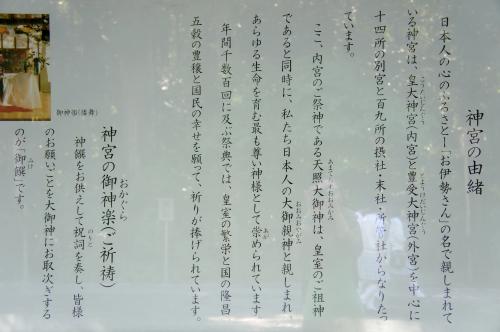 神宮の由緒
日本人の心のふるさと―「お伊勢さん」の名で親しまれて
いる神宮は、皇大神宮(内宮)と豊受大神宮(外宮)を中心に
十四所の別宮と百九所の摂社・末社・所管社からなりたっ
ています。
ここ、内宮のご祭神である天照大御神は、皇室のご祖神
であると同時に、私たち日本人の大御親神と親しまれ
あらゆる生命を育む最も尊い神様として崇められています
年間千数百回に及ぶ祭典では、皇室の繁栄と国の隆昌
五穀の豊穣と国民の幸せを願って、祈りが捧げられています。
御神楽(倭舞)
神宮の御神楽(ご祈祷)
神饌をお供えして祝詞を奏し、皆様
のお願いごとを大御神にお取次ぎする
のが「御饌」です。